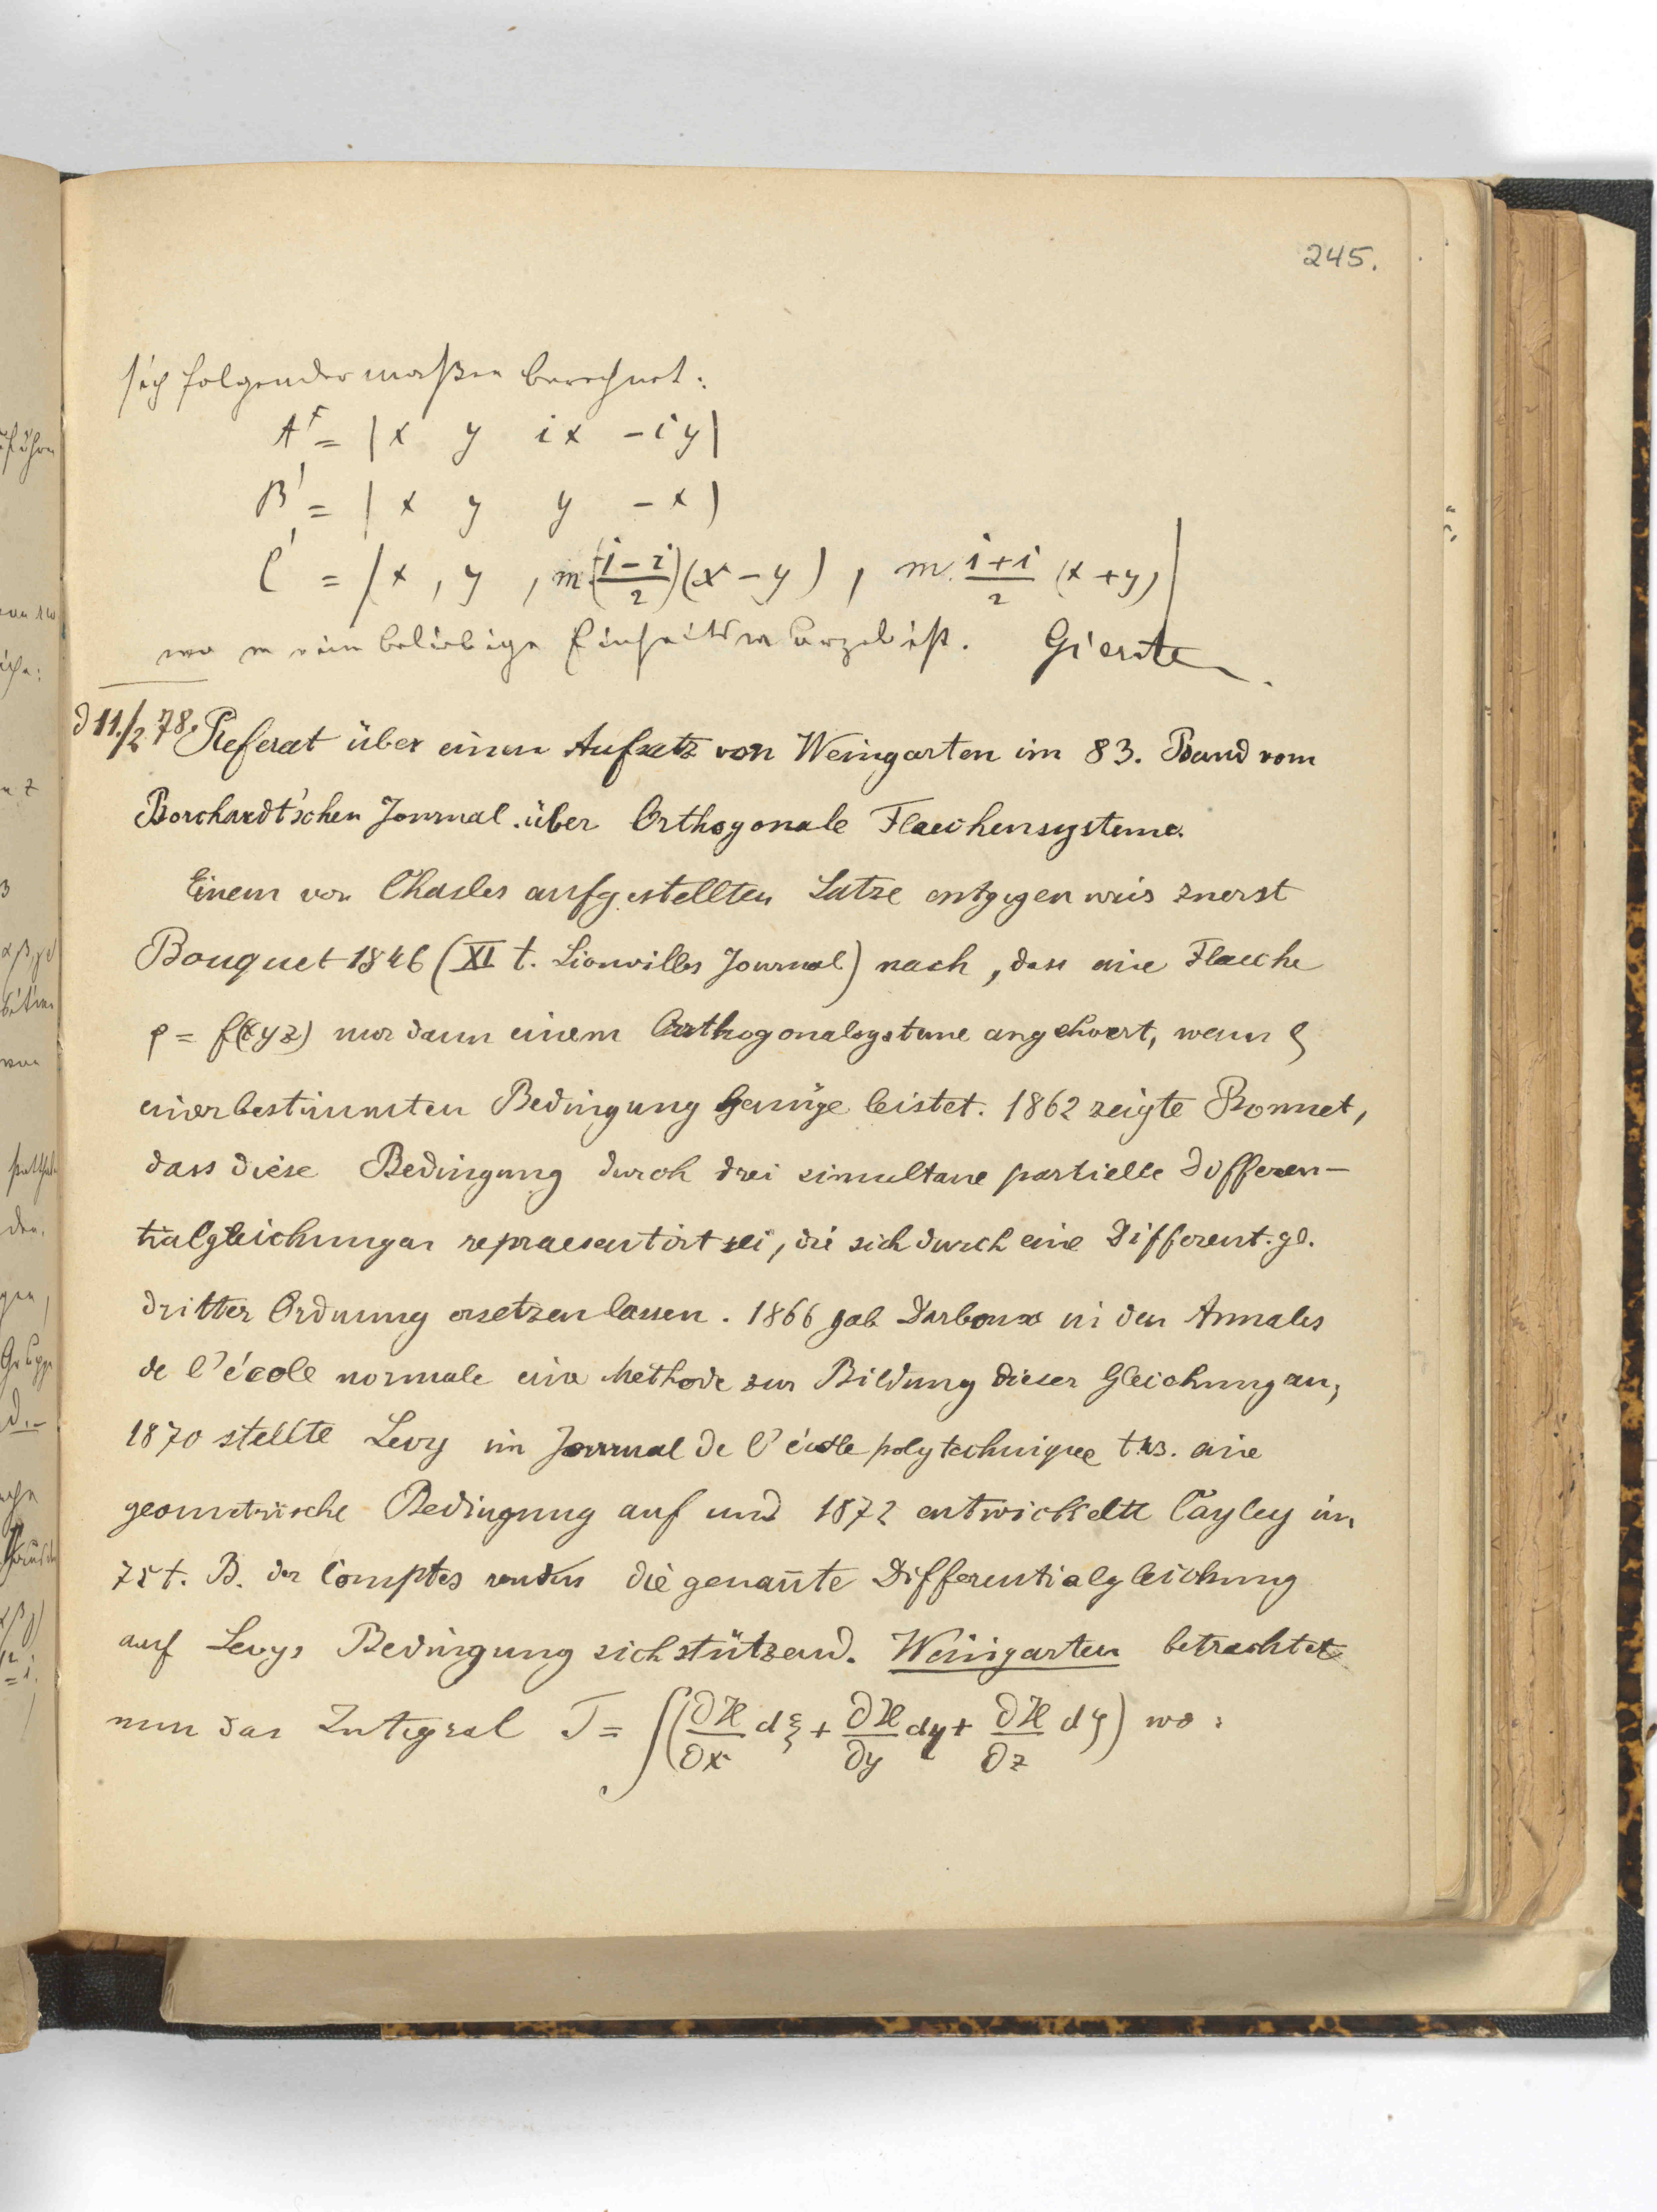 245.
sich folgendermaßen berechnet:
A' = | x y ix -iy |
B' = | x y y -x |
C' = | x, y, m(\frac{1-i}{2})(x-y), m\frac{1+i}{2}(x+y) |
wo m eine beliebige Einheitswurzel ist. Gierster.
d 11./2 78. Referat über einen Aufsatz von Weingarten im 83. Band vom
Borchardt'schen Journal über Orthogonale Flaechensysteme.
Einem von Chasles aufgestellten Satze entgegen wies zuerst
Bouquet 1846 (XI t. Liouvilles Journal) nach, dass eine Flaeche
ρ = f(xyz) nur dann einem Orthogonalsysteme angehoert, wenn ρ
einer bestimmten Bedingung Genüge leistet. 1862 zeigte Bonnet,
dass diese Bedingung durch drei simultane partielle Differen-
tialgleichungen repraesentirt sei, die sich durch eine Different. gl.
dritter Ordnung ersetzen lassen. 1866 gab Darboux in den Annales
de l'école normale eine Methode zur Bildung dieser Gleichung an,
1870 stellte Levy im Journal de l'école polytechnique t. 43. eine
geometrische Bedingung auf und 1872 entwickelte Cayley im
75 t. B. der Comptes rendus die genan̄te Differentialgleichung
auf Levys Bedingung sich stützend. Weingarten betrachtet
nun das Integral J = ∫(\frac{∂H}{∂x} dξ + \frac{∂H}{∂y} dη + \frac{∂H}{∂z} dζ) wo: